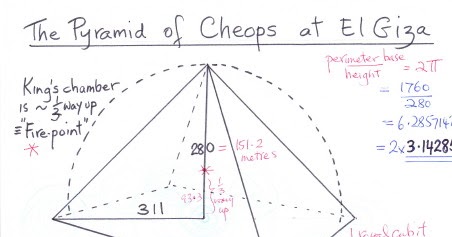 The Pyramid of Cheops at El Giza
King's chamber
is ~ 1/3 way up
≡ "Fire-point"
*
perimeter base
height
= 2π
= 1760
280
= 6.285714
= 2 x 3.14285
280 = 151.2
metres
*
1/3
way
up
311